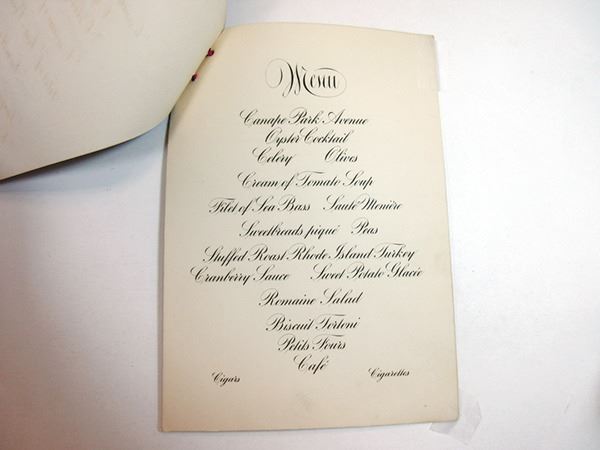 Menu
Canape Park Avenue
Oyster Cocktail
Celery Olives
Cream of Tomato Soup
Filet of Sea Bass Sauté Meniére
Sweetbreads piqué Peas
Stuffed Roast Rhode Island Turkey
Cranberry Sauce Sweet Potato Glacie
Romaine Salad
Biscuit Tortoni
Petits Fours
Café
Cigars Cigarettes